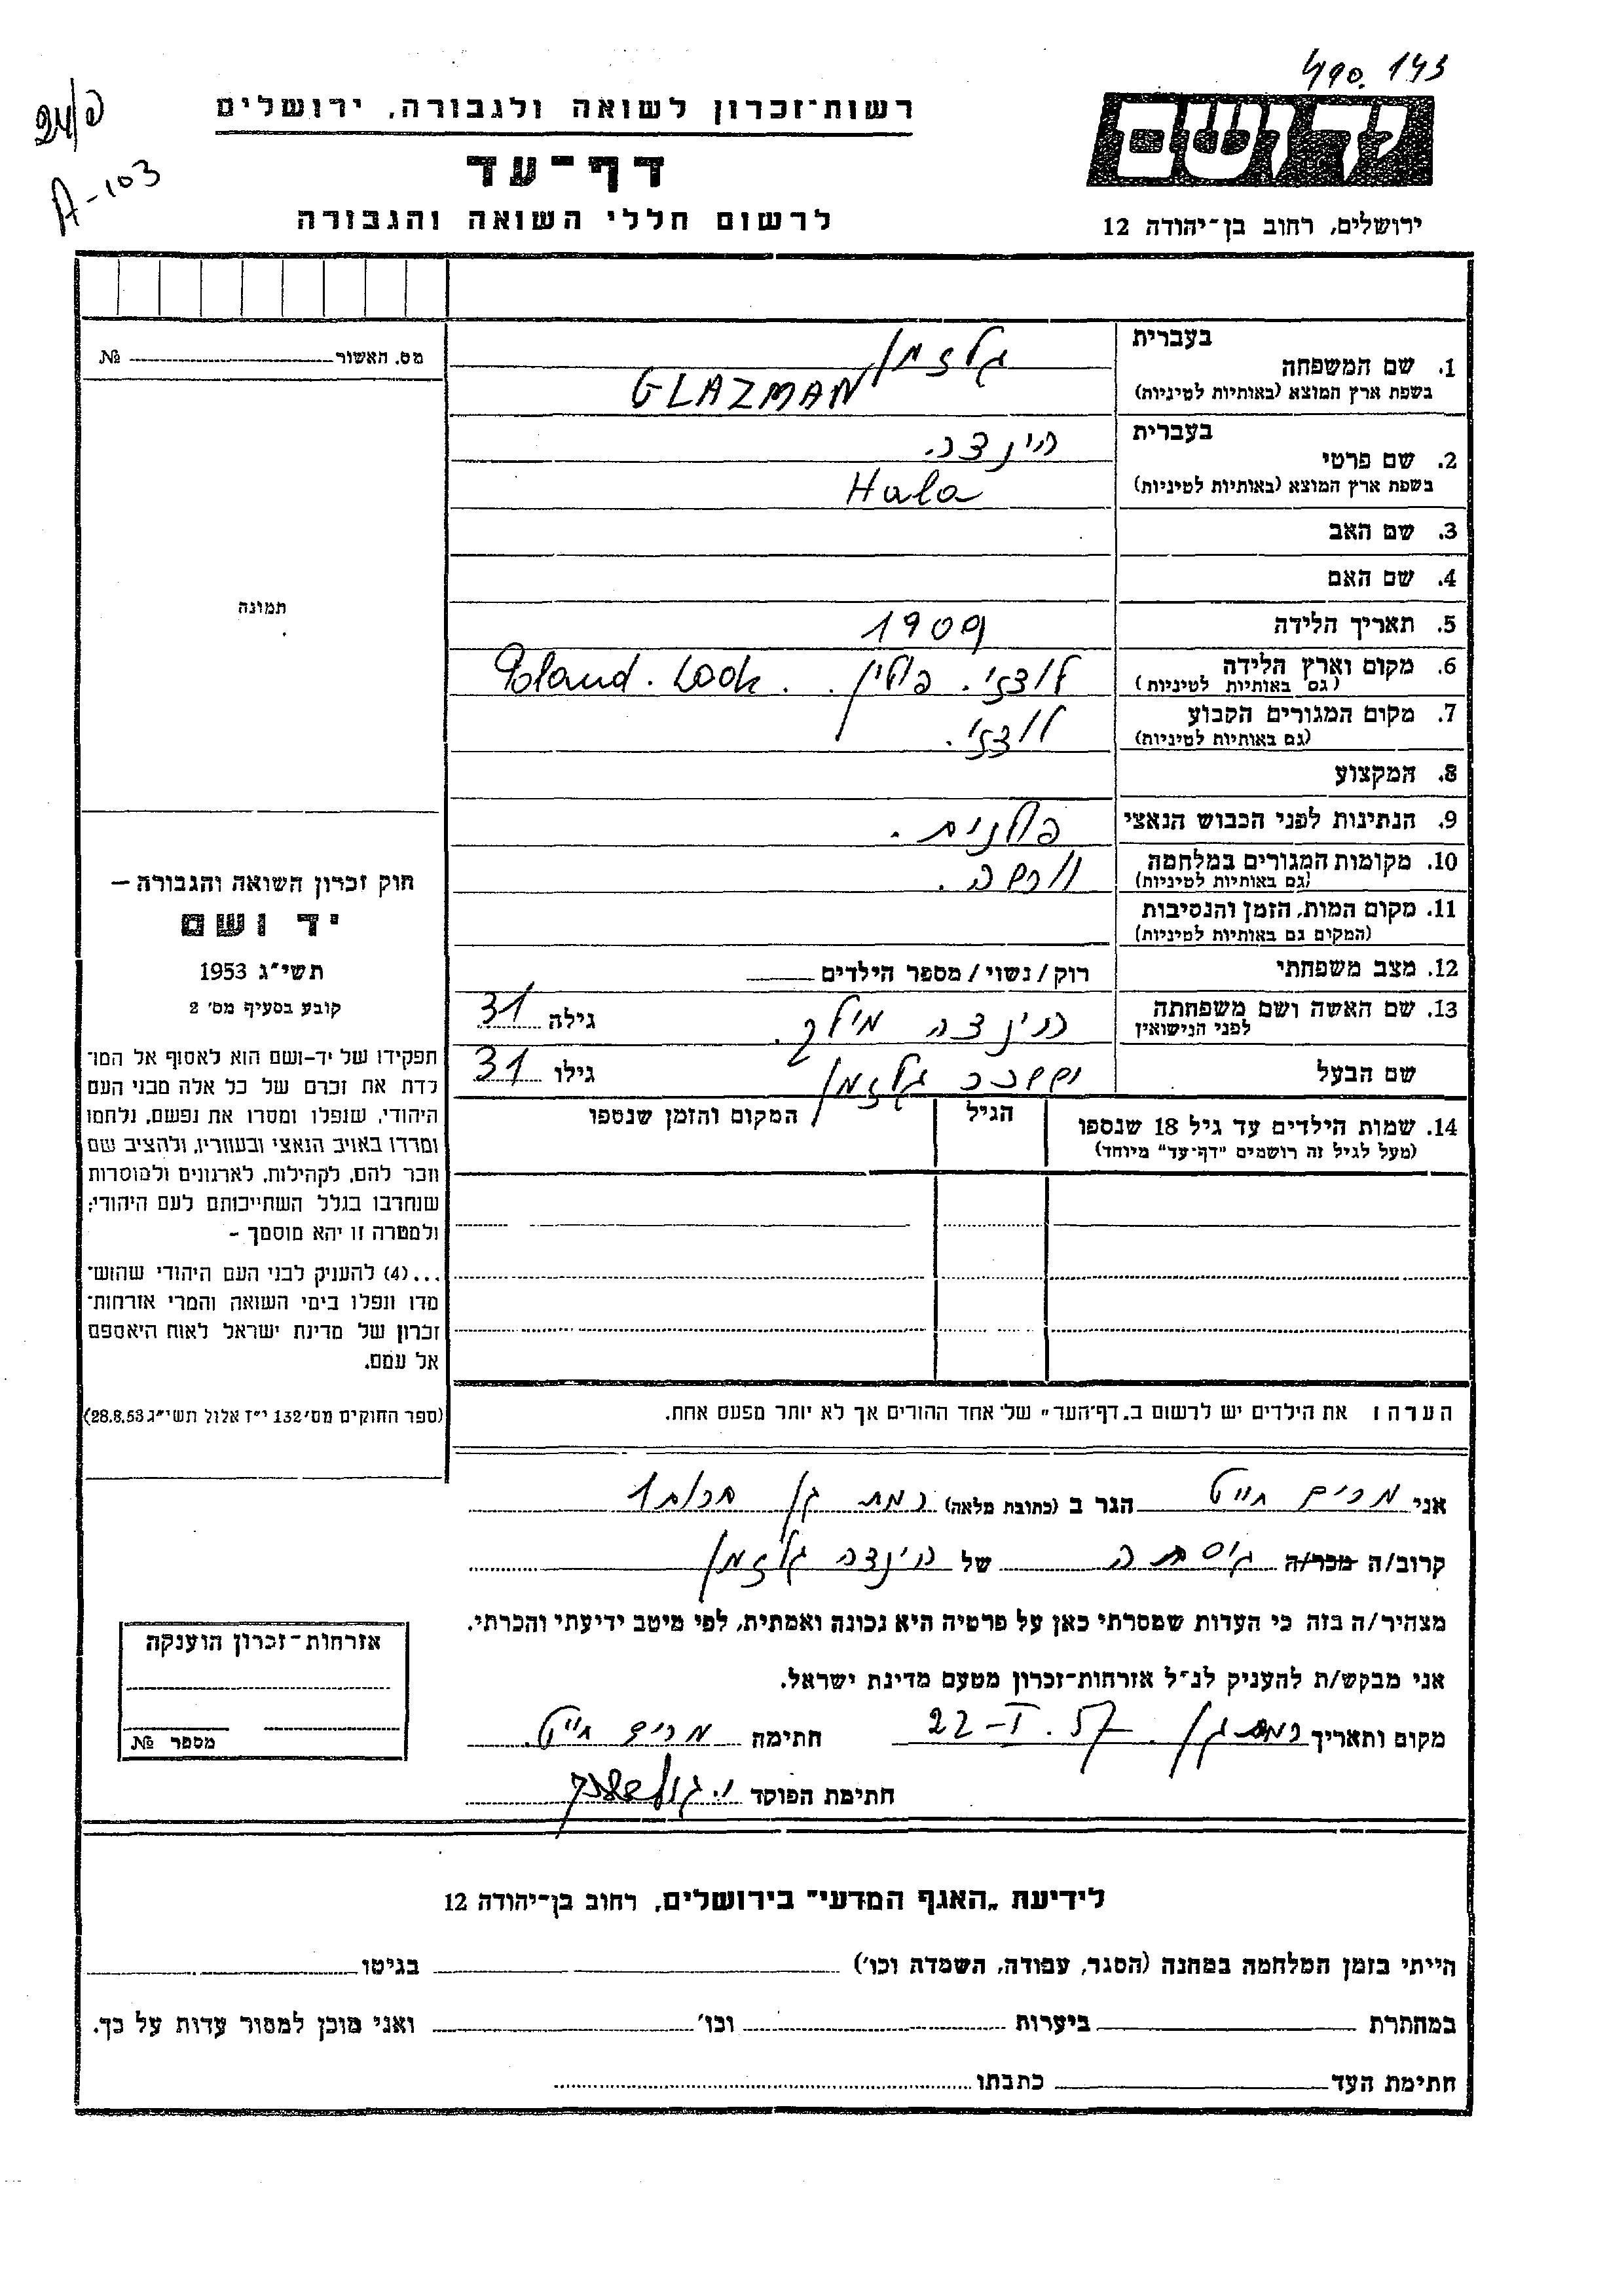 490.143
רשות־זכרון לשואה ולגבורה, ירושלים
A-103
דף־עד
ידושם
לרשום חללי השואה והגבורה
ירושלים, רחוב בן־יהודה 12
בעברית
1. שם המשפחה
בשפת ארץ המוצא (באותיות לטיניות)
גלזמן
GLAZMAN
בעברית
2. שם פרטי
בשפת ארץ המוצא (באותיות לטיניות)
הינצה.
Hala
3. שם האב
4. שם האם
5. תאריך הלידה 1909
6. מקום וארץ הלידה
(גם באותיות לטיניות)
לודזי. פולין. Poland. Lodz.
7. מקום המגורים הקבוע
(גם באותיות לטיניות)
לודזי.
8. המקצוע
9. הנתינות לפני הכבוש הנאצי פולנית.
10. מקומות המגורים במלחמה
(גם באותיות לטיניות)
ורשה.
11. מקום המות, הזמן והנסיבות
(המקום גם באותיות לטיניות)
12. מצב משפחתי רוק/נשוי/מספר הילדים
13. שם האשה ושם משפחתה
לפני הנישואין
הינצה גילה 31
שם הבעל גלזמן גילו 31
14. שמות הילדים עד גיל 18 שנספו
(מעל לגיל זה רושמים "דף־עד" מיוחד)
הגיל
המקום והזמן שנספו
הערה: את הילדים יש לרשום ב„דף־העד" של אחד ההורים אך לא יותר מפעם אחת.
מס. האשור №
תמונה
חוק זכרון השואה והגבורה –
יד ושם
תשי"ג 1953
קובע בסעיף מס' 2
תפקידו של יד-ושם הוא לאסוף אל המו־
לדת את זכרם של כל אלה מבני העם
היהודי, שנפלו ומסרו את נפשם, נלחמו
ומרדו באויב הנאצי ובעוזריו, ולהציב שם
וזכר להם, לקהילות, לארגונים ולמוסדות
שנחרבו בגלל השתייכותם לעם היהודי;
ולמטרה זו יהא מוסמך -
...(4) להעניק לבני העם היהודי שהוש־
מדו ונפלו בימי השואה והמרי אזרחות־
זכרון של מדינת ישראל לאות היאספם
אל עמם.
(ספר החוקים מס' 132 י"ז אלול תשי"ג 28.8.53)
אני מרים חייט הגר ב (כתובת מלאה) רמת גן 1
קרוב/ה מכר/ה גיסתה של הינצה גלזמן
מצהיר/ה בזה כי העדות שמסרתי כאן על פרטיה היא נכונה ואמתית, לפי מיטב ידיעתי והכרתי.
אני מבקש/ת להעניק לנ"ל אזרחות-זכרון מטעם מדינת ישראל.
מקום ותאריך רמת גן. 22-I.57 חתימה מרים חייט.
חתימת הפוקד
אזרחות-זכרון הוענקה
מספר №
לידיעת „האגף המדעי" בירושלים, רחוב בן-יהודה 12
הייתי בזמן המלחמה במחנה (הסגר, עבודה, השמדה וכו') בגיטו
במחתרת ביערות וכו' ואני מוכן למסור עדות על כך.
חתימת העד כתבתו